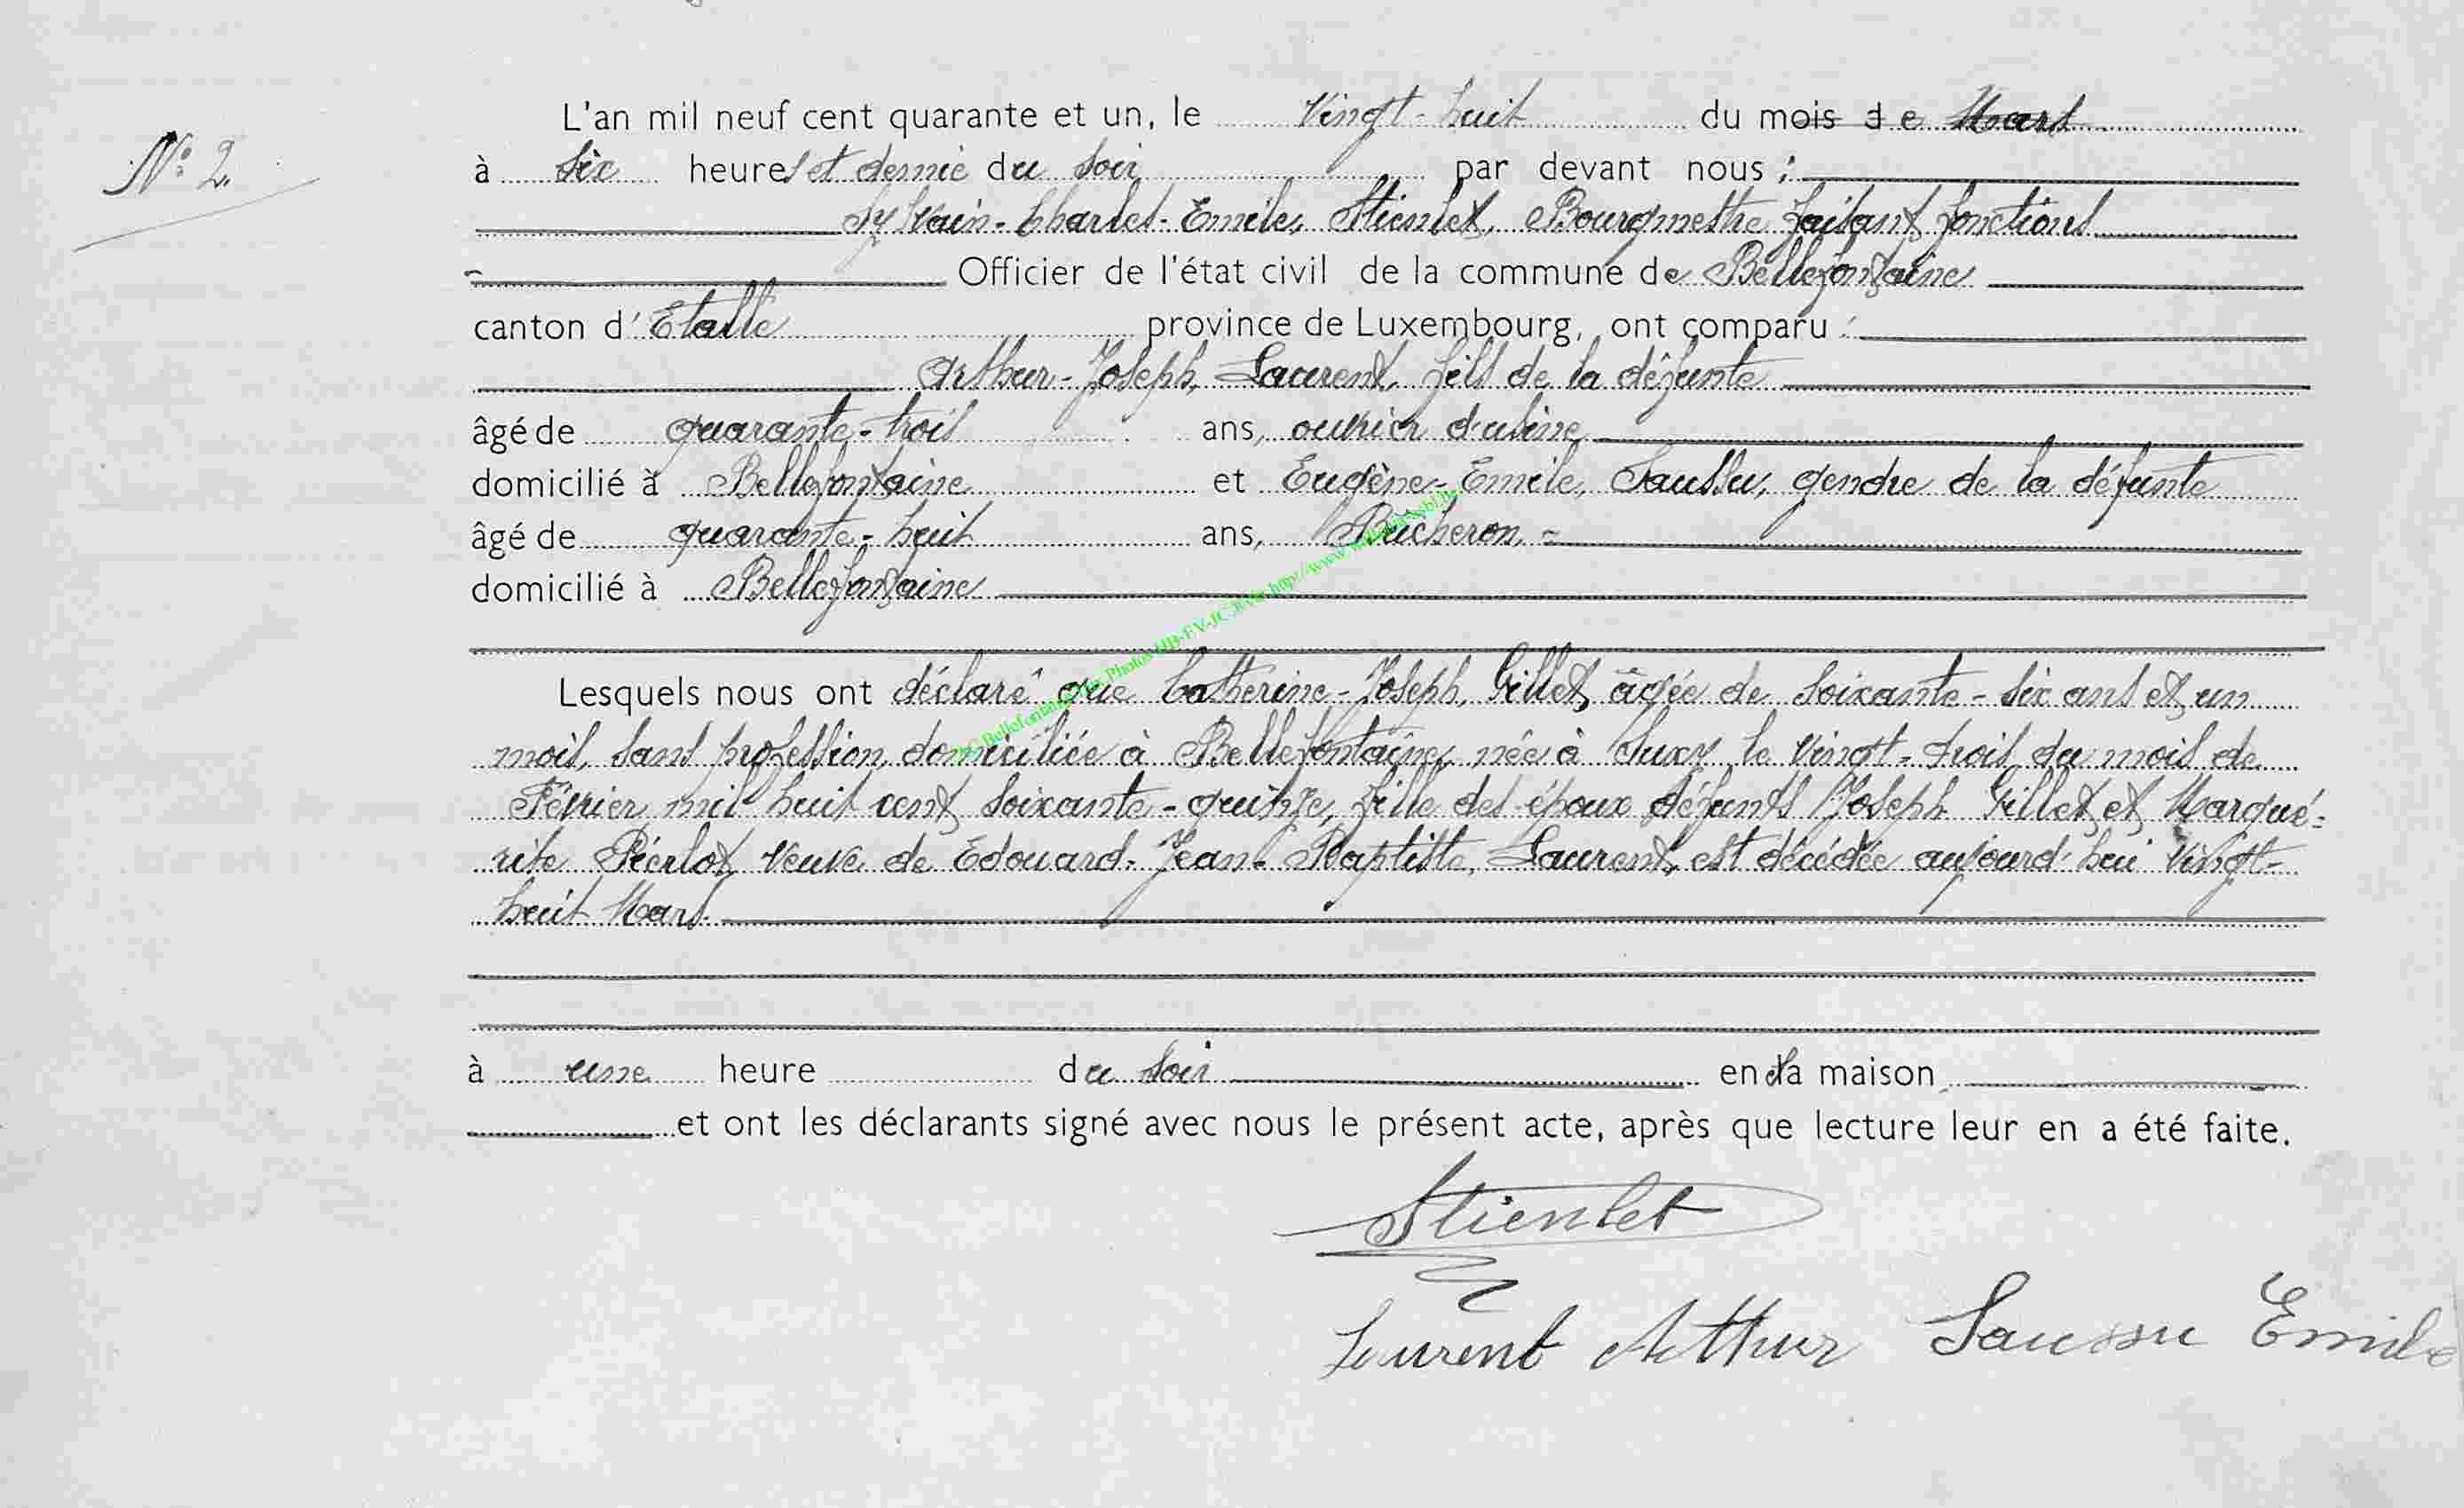 N° 2.
L'an mil neuf cent quarante et un, le Vingt-huit du mois de Mars
à six heures et demie du soir par devant nous :
Sylvain-Charles-Emile, Stienlet, Bourgmestre faisant fonctions
Officier de l'état civil de la commune de Bellefontaine
canton d'Etalle province de Luxembourg, ont comparu :
Arthur-Joseph, Laurent, fils de la défunte
âgé de quarante-trois ans, ouvrier d'usine
domicilié à Bellefontaine et Eugène-Emile, Saussu, gendre de la défunte
âgé de quarante-huit ans, Bûcheron
domicilié à Bellefontaine
Lesquels nous ont déclaré que Catherine-Joseph, Gillet, âgée de soixante-six ans et un
mois, sans profession, domiciliée à Bellefontaine, née à Suxy le vingt-trois du mois de
Février mil huit cent soixante-quinze, fille des époux défunts Joseph Gillet et Margué-
rite Piérlot, veuve de Edouard-Jean-Baptiste, Laurent, est décédée aujourd'hui Vingt-
huit Mars.
à une heure du soir en sa maison
et ont les déclarants signé avec nous le présent acte, après que lecture leur en a été faite.
Stienlet
Laurent Arthur Saussu Emile